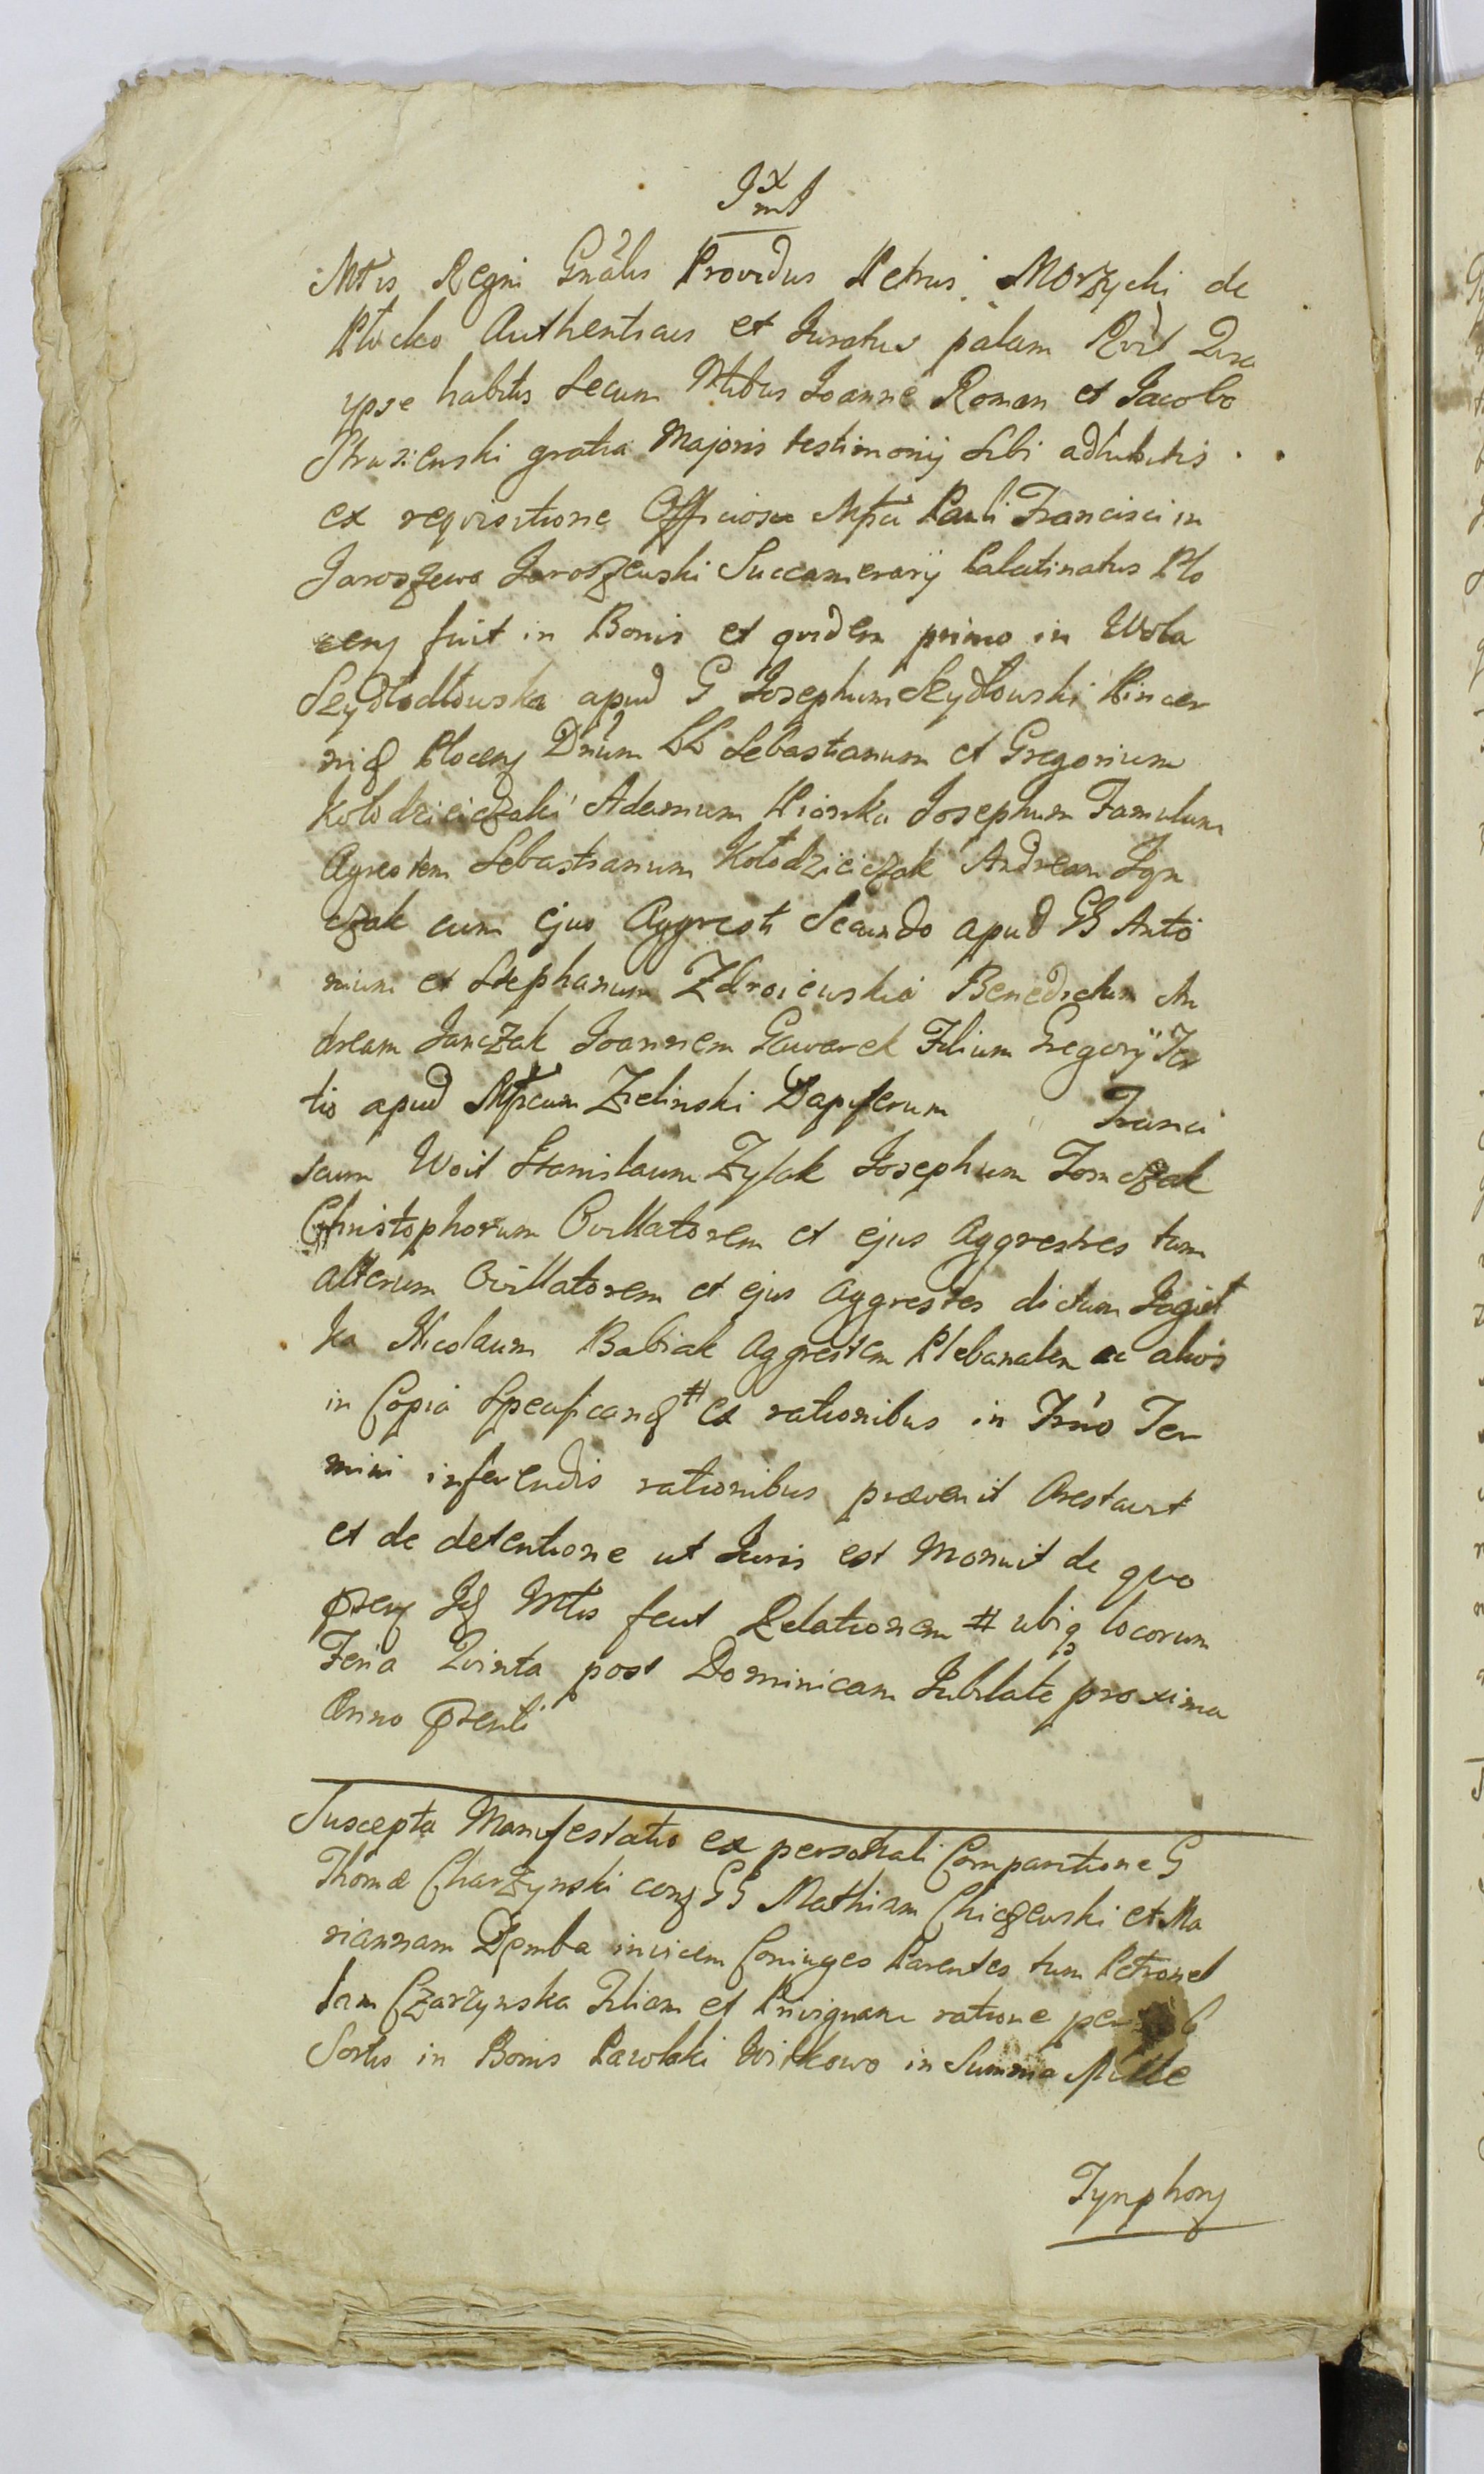 JxmJ
Mtis Regni Gnãlis Providus Petrus Morzycki de
Plocko Authenticus et Juratus palam Rvit Quia
ypse habitis Secum Ntibus Joanne Roman et Jacobo
gratia Majoris testimonij Sibi adhibitis
ex requisitione Officiosa Mfci Pauli Francisci in
Jaroszewo Jaroszewski Succamerarij Palatinatus Plo
cen fuit in Bonis et quidem primo in Wola
Szydłodłowska apud G Josephum Szydłowski Pincer
nig Plocen Dnum LL Sebastianum et Gregorium
Kołodzieiczaki Adamum Pionka Josephum Famulum
Agrestem Sebastianum Kołodzieiczak Andream Ign
czak cum ejus Aggresti Secundo apud GG Anto
nium et Stephanum Zdroiewskie Benedictum An
dream Janczak Joannem Gawarek Filium Gregorij Ter
tio apud Mfcum Zielinski Dapiferum Franci
scum Woit Stanislaum Zyłak Josephum Tomczak
Christophorum Ovillatorem et ejus Aggrestes tum
alterum Ovillatorem et ejus aggrestes dictum Jagieł
ka Nicolaum Babiak Aggrestem Plebanalem ac alios
in Copia Specificand # ex rationibus in Trno Ter
mini inferendis rationibus prævenit Arestavit
et de detentione ut Juris est Monuit de quo
pren Jd Mtis fecit Relationem # ubiq locorum
Feria Quinta post Dominicam Jubilate proxima
Anno prenti
Suscepta Manifestatio ex personali Comparitione G
Thomæ Charzynski con GG Mathiam Chiczewski et Ma
riannam Demba invicem Coniuges Parentes tum Petronel
lam Czarzynska Filiam et Privignam ratione
Sortis in Bonis Pawłaki Witkowo in Summa Mille
Tynphon